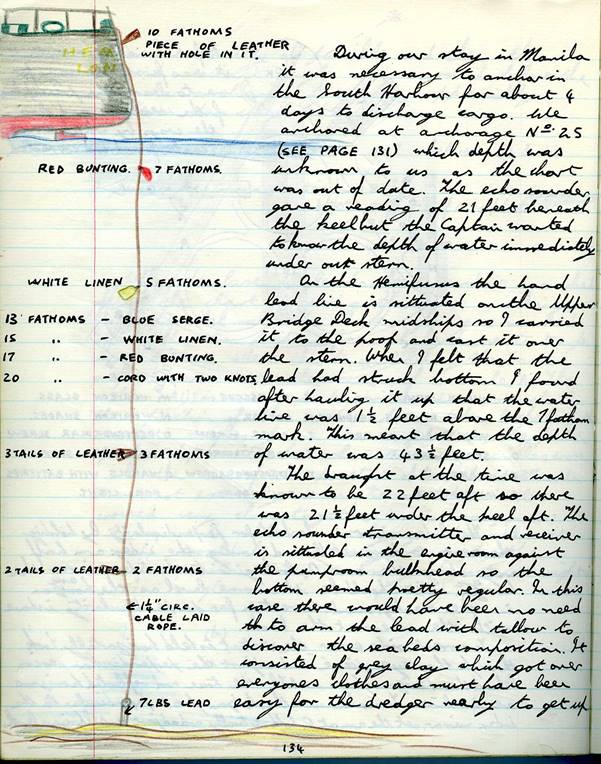 HEM
LON
10 FATHOMS
PIECE OF LEATHER
WITH HOLE IN IT.
RED BUNTING. 7 FATHOMS.
WHITE LINEN 5 FATHOMS.
13 FATHOMS - BLUE SERGE.
15 " - WHITE LINEN.
17 " - RED BUNTING.
20 " - CORD WITH TWO KNOTS
3 TAILS OF LEATHER 3 FATHOMS
2 TAILS OF LEATHER 2 FATHOMS
1¼" CIRC.
CABLE LAID
ROPE.
7LBS LEAD
During our stay in Manila
it was necessary to anchor in
the South Harbour for about 4
days to discharge cargo. We
anchored at achorage Nº 25
(SEE PAGE 131) which depth was
unknown to us as the chart
was out of date. The echo sounder
gave a reading of 21 feet beneath
the keel but the Captain wanted
to know the depth of water immediately
under out stern.
On the Hemifusus the hand
lead line is sittuated on the Upper
Bridge Deck midships so I carried
it to the poop and cast it over
the stern. When I felt that the
lead had struck bottom I found
after hauling it up that the water
line was 1½ feet above the 7 fathom
mark. This meant that the depth
of water was 43½ feet.
The draught at the time was
known to be 22 feet aft so there
was 21½ feet under the keel aft. The
echo sounder transmitter and receiver
is sittuated in the engine room against
the pumproom bulkhead so the
bottom seemed pretty regular. In this
case there would have been no need
th to arm the lead with tallow to
discover the sea beds composition. It
consisted of grey clay which got over
everyones clothes and must have been
easy for the dredger nearby to get up
134